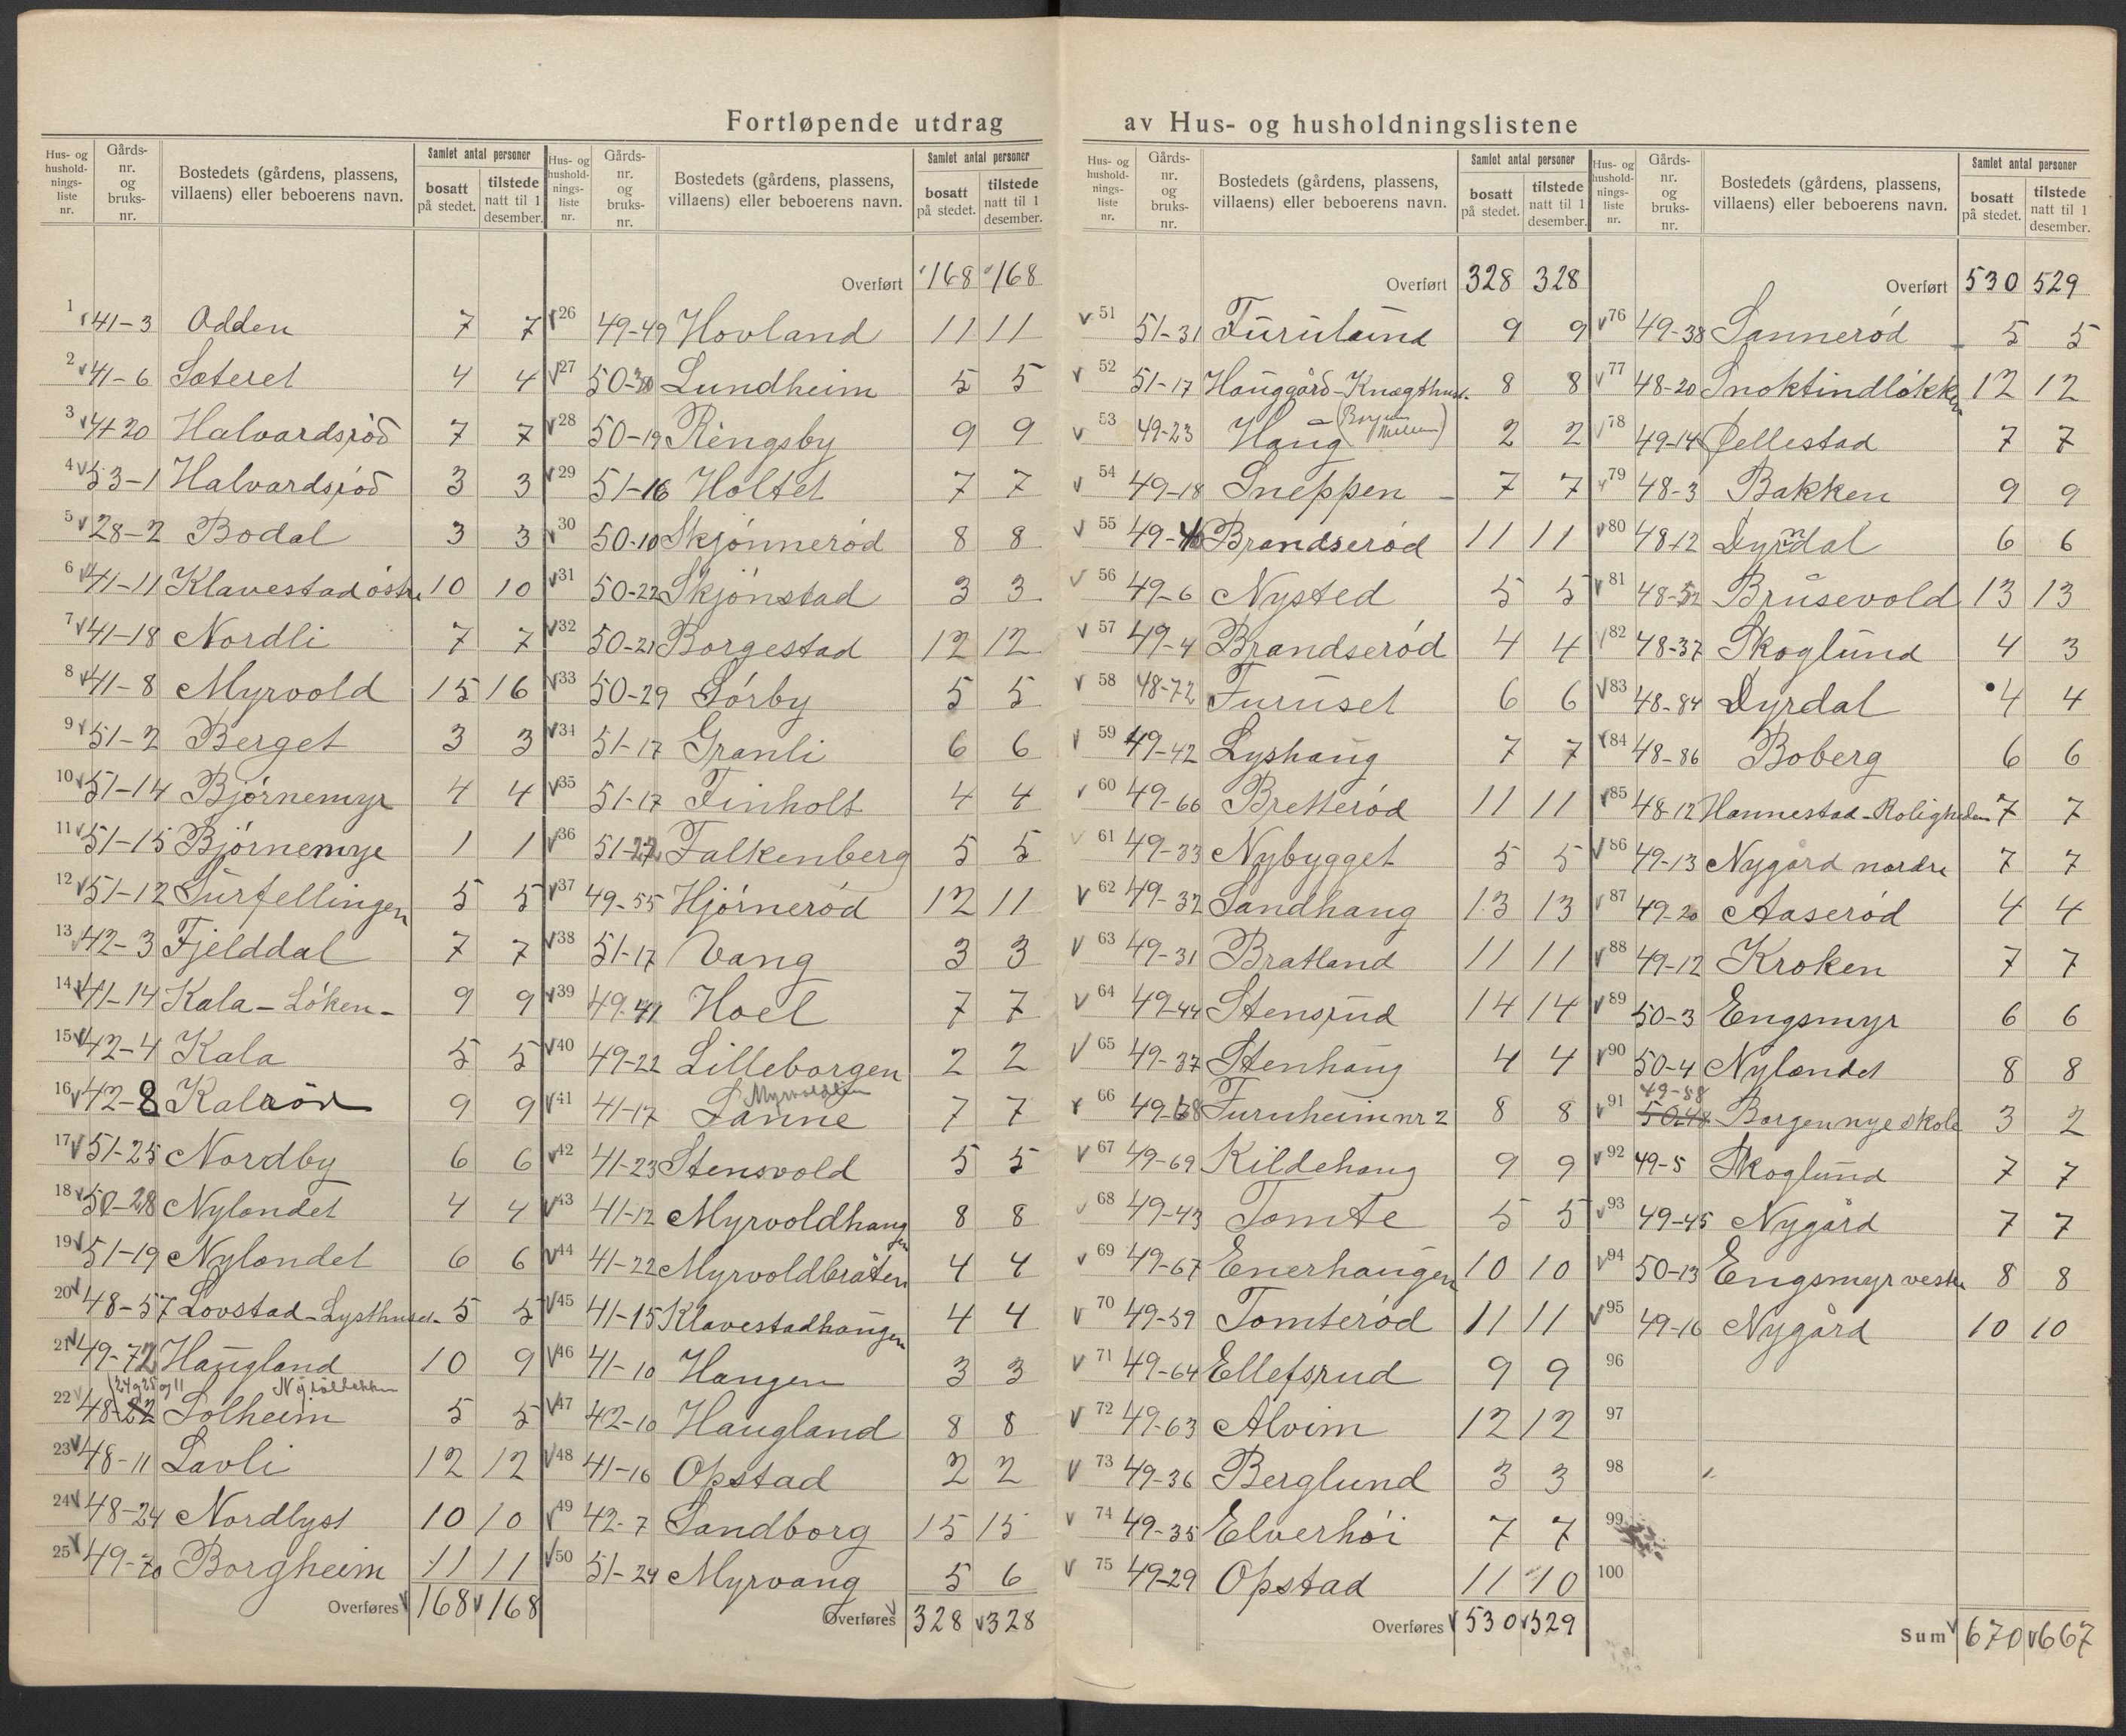 Fortløpende utdrag av Hus- og husholdningslistene
Hus- og hushold-nings-liste nr. | Gårds-nr. og bruks-nr. | Bostedets (gårdens, plassens, villaens) eller beboerens navn. | Samlet antal personer | bosatt på stedet. | tilstede natt til 1 desember.
1 41-3 Odden 7 7
2 41-6 Sæteret 4 4
3 41-20 Halvardsrød 7 7
4 53-1 Halvardsrød 3 3
5 28-2 Bodal 3 3
6 41-11 Klavestad østre 10 10
7 41-18 Nordli 7 7
8 41-8 Myrvold 15 16
9 51-2 Berget 3 3
10 51-14 Bjørnemyr 4 4
11 51-15 Bjørnemyr 1 1
12 51-12 Surfellingen 5 5
13 42-3 Fjelddal 7 7
14 41-14 Kala - Løken - 9 9
15 42-4 Kala 5 5
16 42-8 Kalarød 9 9
17 51-25 Nordby 6 6
18 50-28 Nylandet 4 4
19 51-19 Nylandet 6 6
20 48-57 Lovstad - Lysthuset - 5 5
21 49-72 Haugland 10 9
22 48- Solheim 5 5
23 48-11 Lavli 12 12
24 48-24 Nordlyst 10 10
25 49-70 Borgheim 11 11
Overføres 168 168
Hus- og hushold-nings-liste nr. | Gårds-nr. og bruks-nr. | Bostedets (gårdens, plassens, villaens) eller beboerens navn. | Samlet antal personer | bosatt på stedet. | tilstede natt til 1 desember.
Overført 168 168
26 49-49 Hovland 11 11
27 50- Lundheim 5 5
28 50-19 Ringsby 9 9
29 51-16 Holtet 7 7
30 50-10 Skjønnerød 8 8
31 50-22 Skjønstad 3 3
32 50-21 Borgestad 12 12
33 50-29 Sørby 5 5
34 51-17 Granli 6 6
35 51-17 Finholt 4 4
36 51-22 Falkenberg 5 5
37 49-55 Hjørnerød 12 11
38 51-17 Vang 3 3
39 49- Hoel 7 7
40 49-22 Lilleborgen 2 2
41 41-17 Sanne 7 7
42 41-23 Stensvold 5 5
43 41-12 Myrvoldhaugen 8 8
44 41-22 Myrvoldbråten 4 4
45 41-15 Klavestadhaugen 4 4
46 41-10 Haugen 3 3
47 42-10 Haugland 8 8
48 41-16 Opstad 2 2
49 42-7 Sandborg 15 15
50 51-29 Myrvang 5 6
Overføres 328 328
Hus- og hushold-nings-liste nr. | Gårds-nr. og bruks-nr. | Bostedets (gårdens, plassens, villaens) eller beboerens navn. | Samlet antal personer | bosatt på stedet. | tilstede natt til 1 desember.
Overført 328 328
51 51-31 Furulund 9 9
52 51-17 Hauggård - Knægthuset 8 8
53 49-23 Haug 2 2
54 49-18 Sneppen - 7 7
55 49- Brandserød 11 11
56 49-6 Nysted 5 5
57 49-4 Brandserød 4 4
58 48-72 Furuset 6 6
59 49-42 Lyshaug 7 7
60 49-66 Bretterød 11 11
61 49-33 Nybygget 5 5
62 49-32 Sandhaug 13 13
63 49-31 Bratland 11 11
64 49-44 Stensrud 14 14
65 49-37 Stenhaug 4 4
66 49-68 Furuheim nr 2 8 8
67 49-69 Kildehaug 9 9
68 49-43 Tomte 5 5
69 49-67 Enerhaugen 10 10
70 49-59 Tomterød 11 11
71 49-64 Ellefsrud 9 9
72 49-63 Alvim 12 12
73 49-36 Berglund 3 3
74 49-35 Elverhøi 7 7
75 49-29 Opstad 11 10
Overføres 530 529
Hus- og hushold-nings-liste nr. | Gårds-nr. og bruks-nr. | Bostedets (gårdens, plassens, villaens) eller beboerens navn. | Samlet antal personer | bosatt på stedet. | tilstede natt til 1 desember.
Overført 530 529
76 49-38 Sannerød 5 5
77 48-20 Snoktindløkken 12 12
78 49-14 Jellestad 7 7
79 48-3 Bakken 9 9
80 48-12 Dyrendal 6 6
81 48-52 Brusevold 13 13
82 48-37 Skoglund 4 3
83 48-84 Dyrdal 4 4
84 48-86 Boberg 6 6
85 48-12 Hannestad - Roligheden 7 7
86 49-13 Nygård nordre 7 7
87 49-20 Aaserød 4 4
88 49-12 Kroken 7 7
89 50-3 Engsmyr 6 6
90 50-4 Nylandet 8 8
91 49-88 Borgen nye skole 3 2
92 49-5 Skoglund 7 7
93 49-45 Nygård 7 7
94 50-13 Engsmyr vestre 8 8
95 49-16 Nygård 10 10
96
97
98
99
100
Sum 670 667